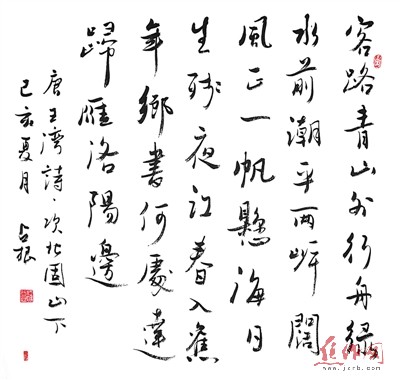 客路青山外行舟綠
水前潮平兩岸闊
風正一帆懸海日
生殘夜江春入舊
年鄉書何處達
歸雁洛陽邊
唐王灣詩·次北固山下
己亥夏月 占根
www.jcrb.com